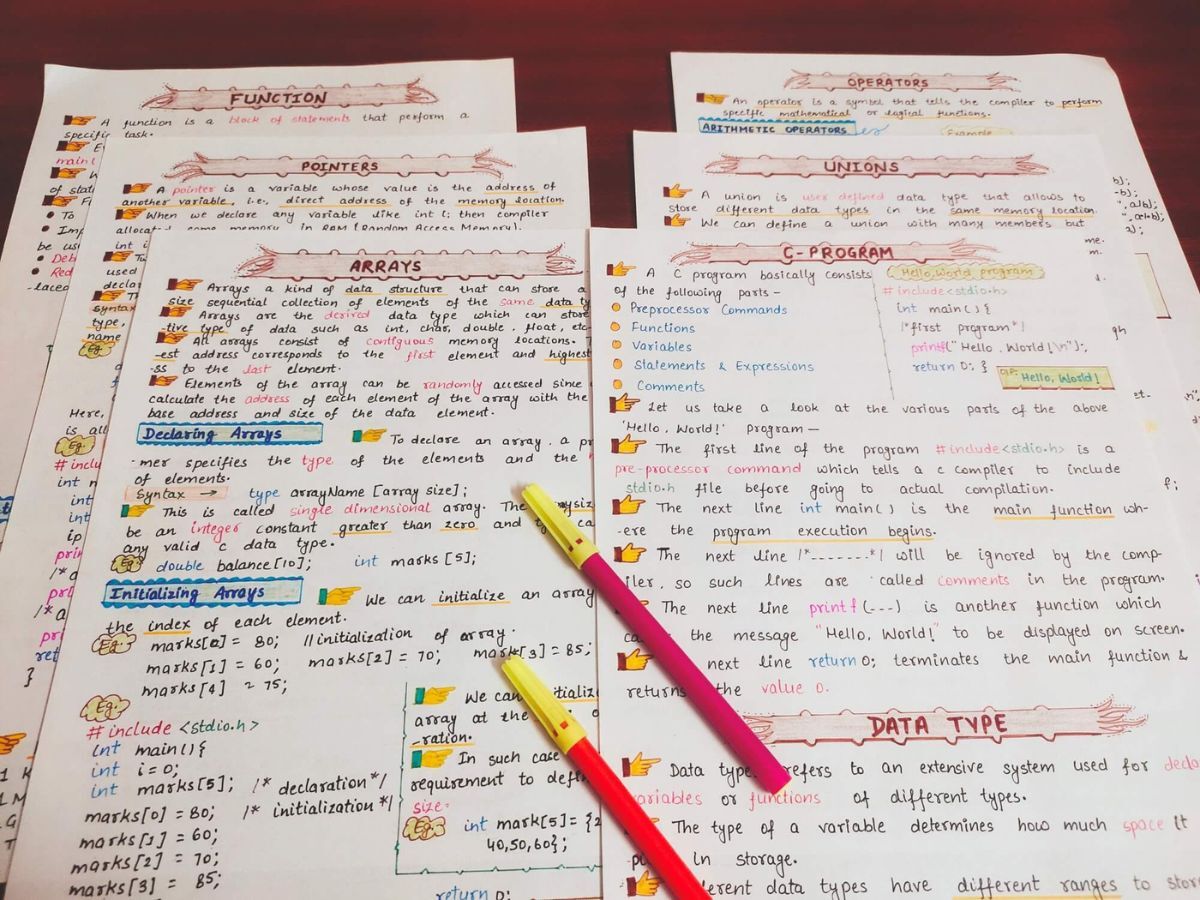 FUNCTION
A function is a block of statements that perform a
specific task.
main(
of stat
To
Imp
be us
Deb
Red
-laced
Here,
is all
Eg
# inclu
int
int
int
prin
/*a
pri
/*a
pri
ret
}
POINTERS
A pointer is a variable whose value is the address of
another variable, i.e., direct address of the memory location.
When we declare any variable like int i; then compiler
allocates some memory in RAM [Random Access Memory].
int i
used
declar
Th
Syntax
type,
name
Eg
ARRAYS
Arrays a kind of data structure that can store a
size sequential collection of elements of the same data ty
Arrays are the desired data type which can store
-tive type of data such as int, char, double, float, etc
All arrays consist of contiguous memory locations.
-est address corresponds to the first element and highest
-ss to the last element.
Elements of the array can be randomly accessed since
calculate the address of each element of the array with the
base address and size of the data element.
Declaring Arrays
To declare an array, a pr
-mer specifies the type of the elements and the
of elements.
Syntax → type arrayName [array size];
This is called single dimensional array. The
be an integer constant greater than zero and
any valid c data type.
Eg: double balance[10]; int marks [5];
Initializing Arrays
We can initialize an array
the index of each element.
Eg: marks[0] = 80; //initialization of array.
marks[1] = 60; marks[2] = 70; mark[3] = 85;
marks[4] = 75;
Eg:
# include <stdio.h>
int main(){
int i=0;
int marks[5]; /* declaration */
marks[0] = 80; /* initialization */
marks[1] = 60;
marks[2] = 70;
marks[3] = 85;
We can
array at the
-ration.
In such case
requirement to
size.
Eg:
int mark[5] = {2
40,50,60};
return 0;
OPERATORS
An operator is a symbol that tells the compiler to perform
specific mathematical or logical functions.
ARITHMETIC OPERATORS
Example
UNIONS
A union is user defined data type that allows to
store different data types in the same memory location.
We can define a union with many members but
C-PROGRAM
A C program basically consists
of the following parts -
Preprocessor Commands
Functions
Variables
Statements & Expressions
Comments
Hello,World program
# include<stdio.h>
int main(){
/*first program*/
printf("Hello, World!\n");
return 0; }
O/P:- Hello, World!
Let us take a look at the various parts of the above
'Hello, World!' program-
The first line of the program #include<stdio.h> is a
pre-processor command which tells a c compiler to include
stdio.h file before going to actual compilation.
The next line int main() is the main function wh-
-ere the program execution begins.
The next line /*-------*/ will be ignored by the comp-
iler, so such lines are called comments in the program.
The next line printf(---) is another function which
the message "Hello, World!" to be displayed on screen.
next line return 0; terminates the main function &
returns the value 0.
DATA TYPE
Data type refers to an extensive system used for
variables or functions of different types.
The type of a variable determines how much space it
in storage.
data types have different ranges to